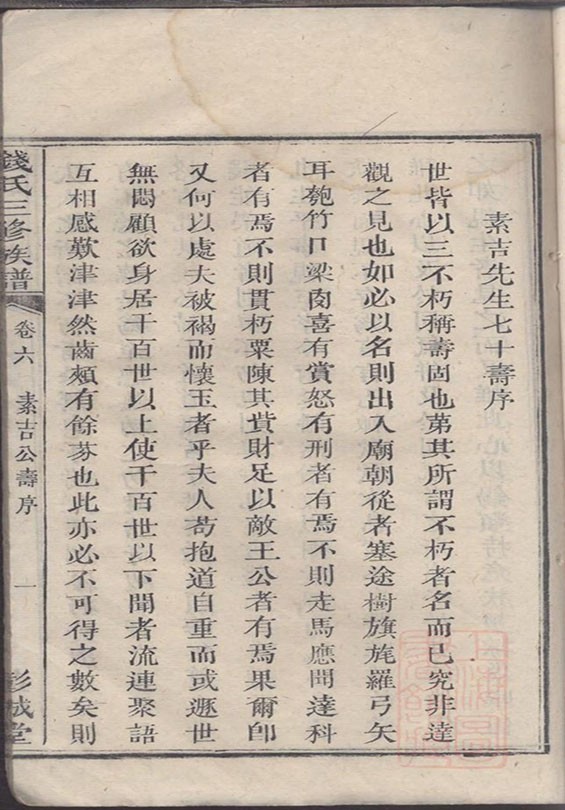 素吉先生七十壽序
世皆以三不朽稱壽固也第其所謂不朽者名而已究非達
觀之見也如必以名則出入廟朝從者塞途樹旗旄羅弓矢
耳匏竹口梁肉喜有賞怒有刑者有焉不則走馬應聞達科
者有焉不則貫朽粟陳其貲財足以敵王公者有焉果爾卽
又何以處夫被褐而懷玉者乎夫人苟抱道自重而或遯世
無悶顧欲身居千百世以上使千百世以下聞者流連聚語
互相感歎津津然齒頰有餘芬也此亦必不可得之數矣則
錢氏三修族譜
卷六 素吉公壽序 一
彭城堂